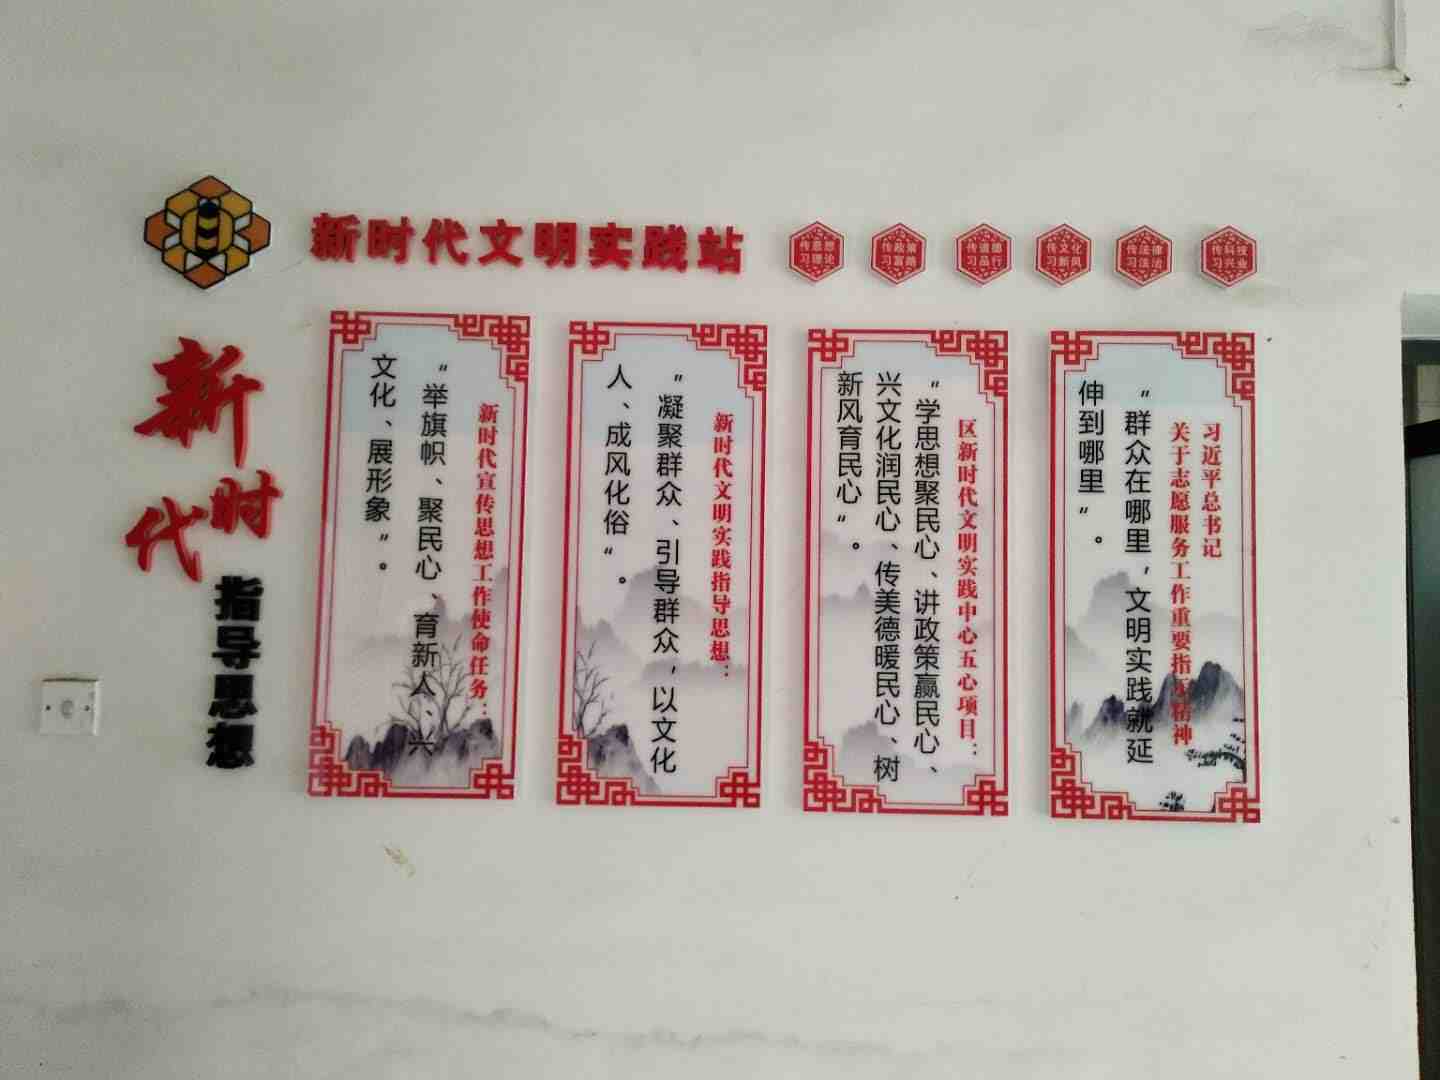 新时代文明实践站
传思想
习理论
传政策
习富路
传道德
习品行
传文化
习新风
传法律
习法治
传科技
习兴业
新时代
指导思想
新时代宣传思想工作使命任务：
“举旗帜、聚民心、育新人、兴
文化、展形象”。
新时代文明实践指导思想：
“凝聚群众、引导群众，以文化
人、成风化俗”。
区新时代文明实践中心五心项目：
“学思想聚民心、讲政策赢民心、
兴文化润民心、传美德暖民心、树
新风育民心”。
习近平总书记
关于志愿服务工作重要指示精神
“群众在哪里，文明实践就延
伸到哪里”。